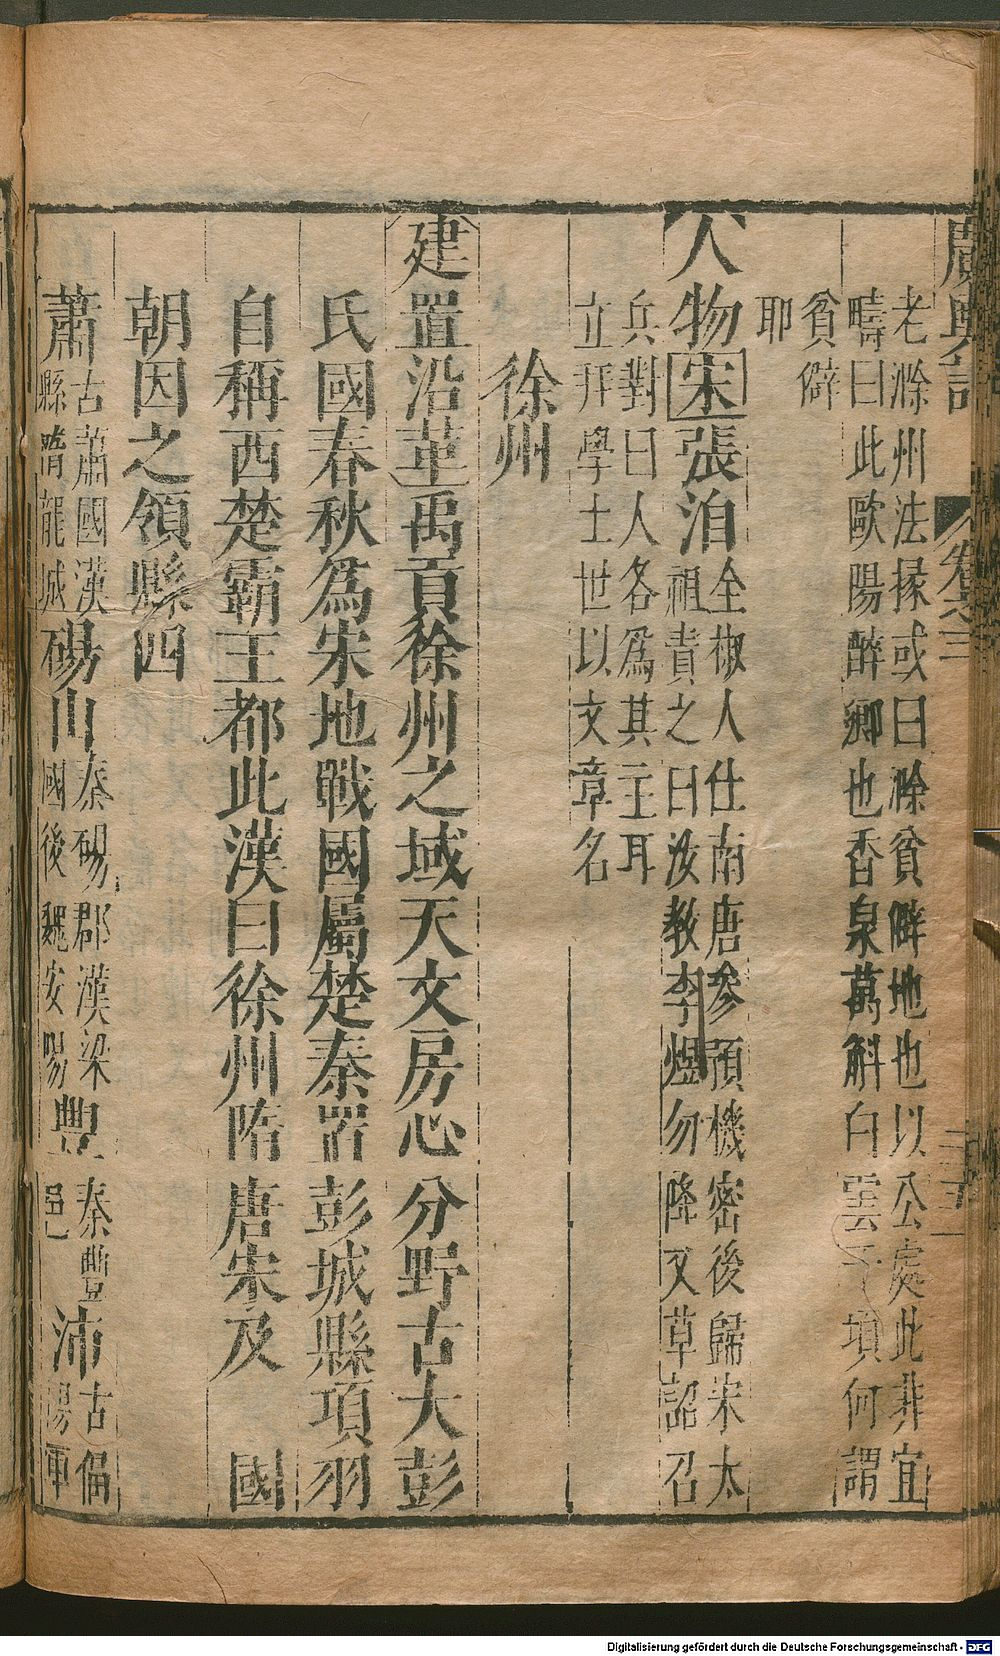 廣輿記
卷之三
老滁州法掾或曰滁貧僻地也以公處此非宜
疇曰此歐陽醉鄉也香泉萬斛白雲千頃何謂
貧僻
耶
人物宋張洎全椒人仕南唐參預機密後歸宋太
祖責之曰汝教李煜勿降又草詔召
兵對曰人各為其主耳
立拜學士世以文章名
徐州
建置沿革禹貢徐州之域天文房心分野古大彭
氏國春秋為宋地戰國屬楚秦置彭城縣項羽
自稱西楚霸王都此漢曰徐州隋唐宋及 國
朝因之領縣四
蕭縣古蕭國漢隋龍城碭山秦碭郡漢梁國後魏安陽豐秦豐邑沛古偪陽
Digitalisierung gefördert durch die Deutsche Forschungsgemeinschaft - DFG